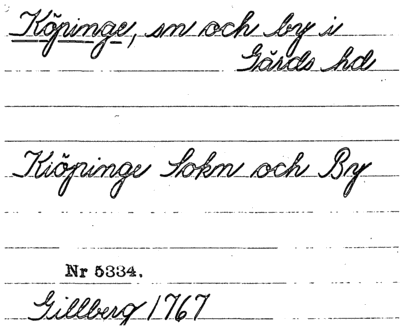 Köpinge, sn och by i
Gärds hd
Kiöpinge Sokn och By
Nr 5334.
Gillberg 1767